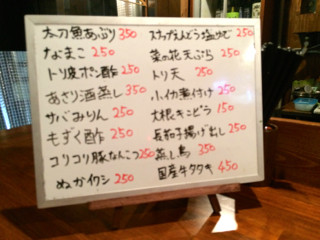 太刀魚あぶり 350
なまこ 250
トリ皮ポン酢 250
あさり酒蒸し 350
サバみりん 250
もずく酢 250
コリコリ豚なんこつ 250
ぬかイワシ 250
スナップえんどう塩ゆで 250
菜の花天ぷら 250
トリ天 250
小イカ煮付け 250
大根キンピラ 150
長茄子揚げ出し 250
蒸し鳥 350
国産牛タタキ 450